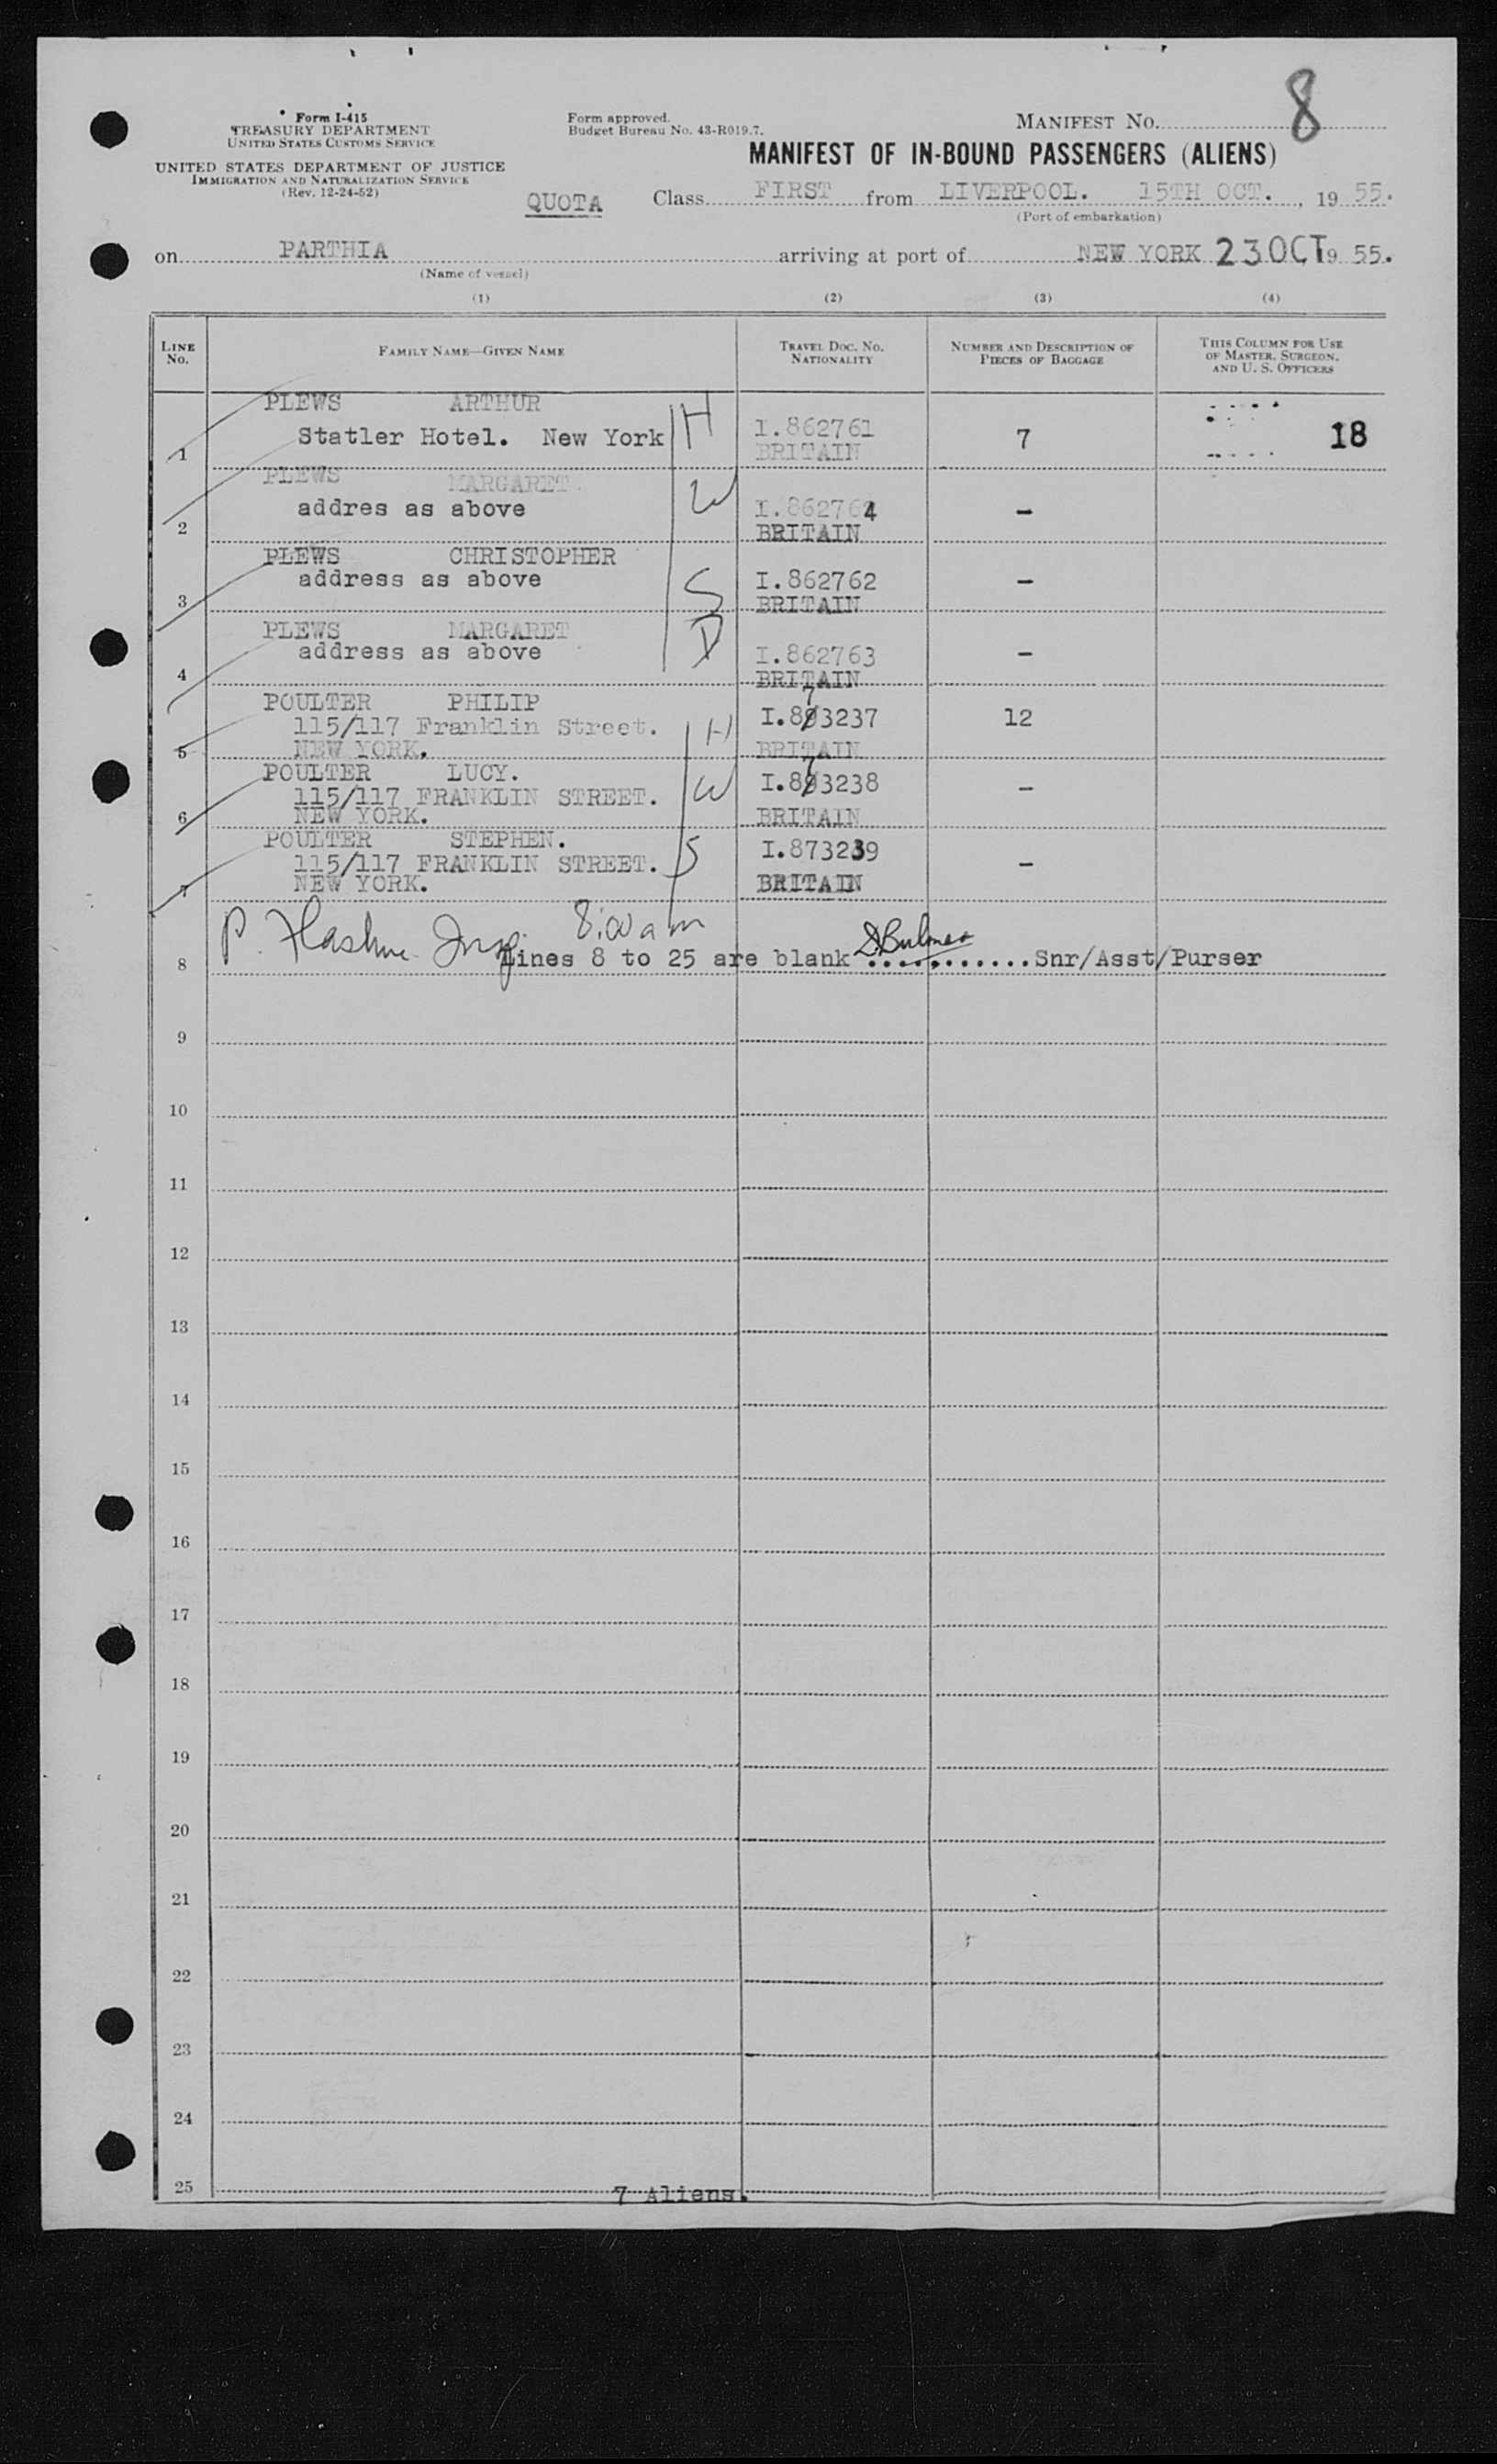 8
Form I-415
TREASURY DEPARTMENT
UNITED STATES CUSTOMS SERVICE
UNITED STATES DEPARTMENT OF JUSTICE
IMMIGRATION AND NATURALIZATION SERVICE
(Rev. 12-24-52)
Form approved.
Budget Bureau No. 43-R019.7.
MANIFEST No.
MANIFEST OF IN-BOUND PASSENGERS (ALIENS)
QUOTA Class FIRST from LIVERPOOL. 15TH OCT. , 19 55.
(Port of embarkation)
on PARTHIA arriving at port of NEW YORK 23 OCT 9 55.
(Name of vessel)
(1) (2) (3) (4)
LINE No. FAMILY NAME—GIVEN NAME TRAVEL DOC. No. NATIONALITY NUMBER AND DESCRIPTION OF PIECES OF BAGGAGE THIS COLUMN FOR USE OF MASTER, SURGEON, AND U. S. OFFICERS
PLEWS ARTHUR
1 Statler Hotel. New York H I.862761 7 18
BRITAIN
PLEWS MARGARET.
2 addres as above W I.862764 -
BRITAIN
PLEWS CHRISTOPHER
3 address as above S I.862762 -
BRITAIN
PLEWS MARGARET
4 address as above D I.862763 -
BRITAIN
POULTER PHILIP
5 115/117 Franklin Street. H I.873237 12
NEW YORK. BRITAIN
POULTER LUCY.
6 115/117 FRANKLIN STREET. W I.873238 -
NEW YORK. BRITAIN
POULTER STEPHEN.
7 115/117 FRANKLIN STREET. S I.873239 -
NEW YORK. BRITAIN
P. 8:00 am
8 Lines 8 to 25 are blank D.Bulmer ............Snr/Asst/Purser
9
10
11
12
13
14
15
16
17
18
19
20
21
22
23
24
25 7 Aliens.